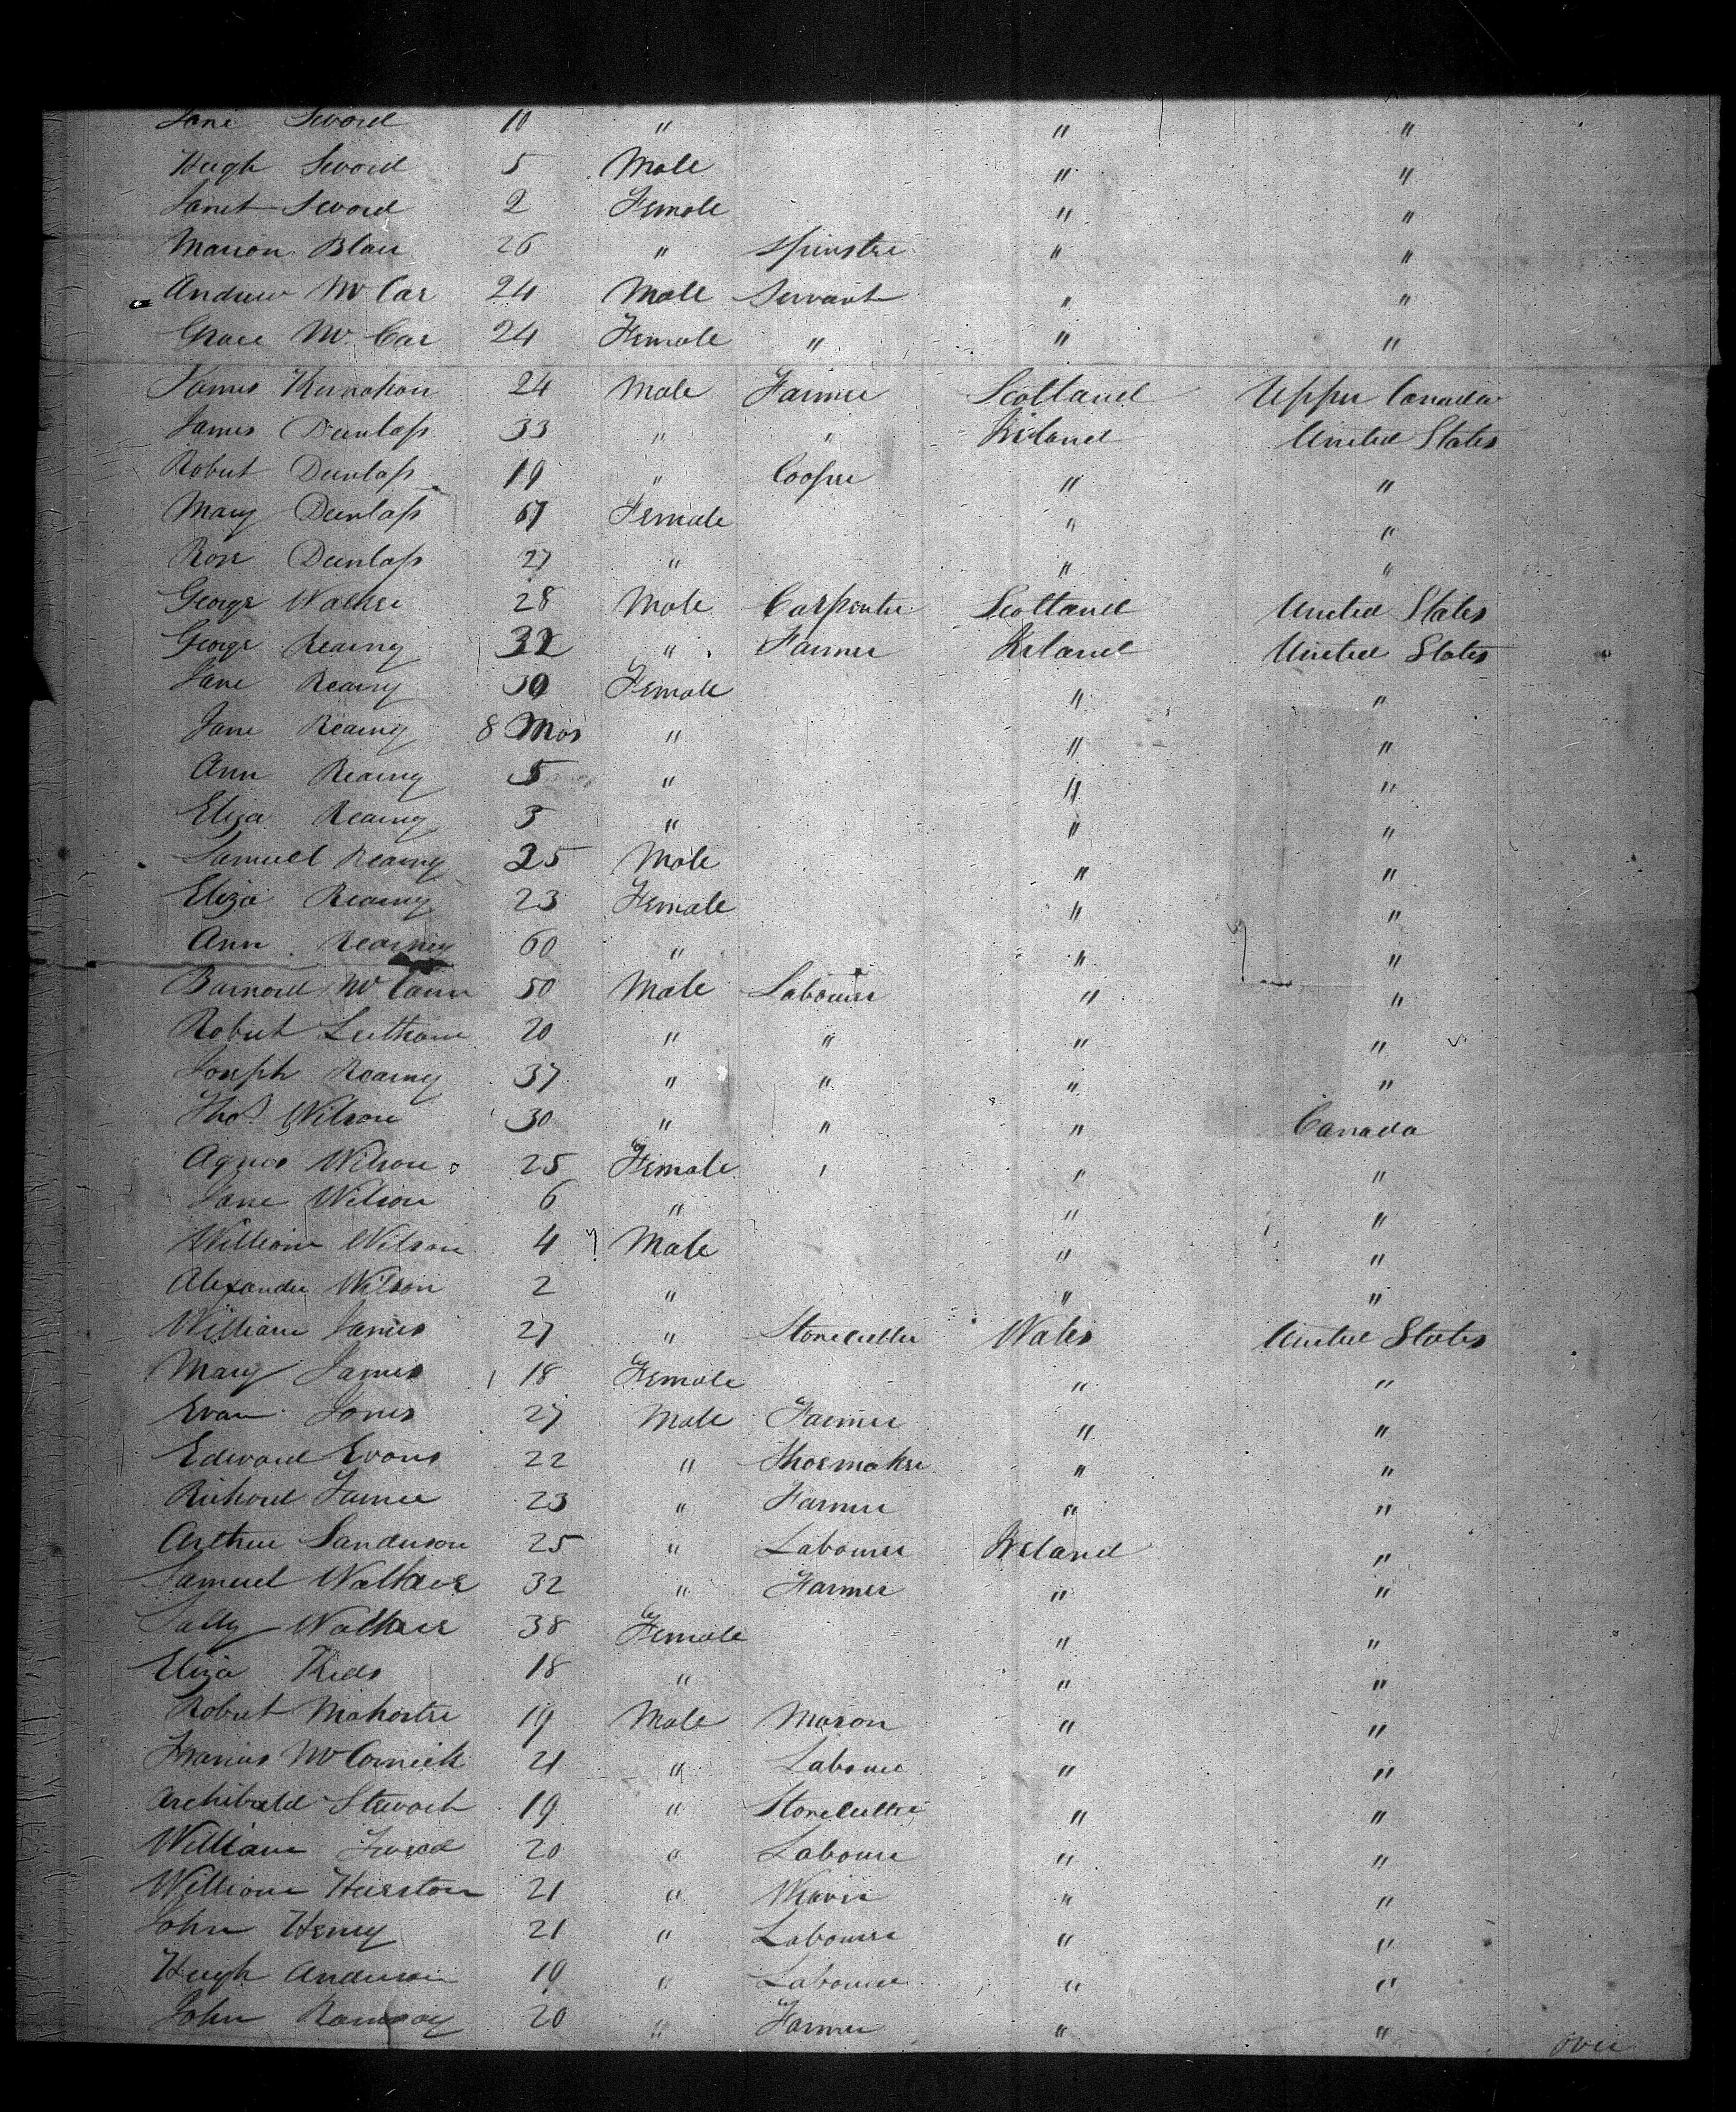 Jane Sword 10 " " "
Hugh Sword 5 Male " "
Janet Sword 2 Female " "
Marion Blair 26 " Spinster " "
Andrew McCar 24 Male Servant " "
Grace McCar 24 Female " " "
James 24 Male Farmer Scotland Upper Canada
James Dunlap 33 " " Ireland United States
Robert Dunlap 19 " Cooper " "
Mary Dunlap 67 Female " "
Rose Dunlap 27 " " "
George Walker 28 Male Carpenter Scotland United States
George Reainy 32 " Farmer Ireland United States
Jane Reainy 30 Female " "
Jane Reainy 8 Mos " " "
Ann Reainy 5 " " "
Eliza Reainy 3 " " "
Samuel Reainy 25 Male " "
Eliza Reainy 23 Female " "
Ann Reainey 60 " " "
Barnard McCann 50 Male Labourer " "
Robert 20 " " " "
Joseph Reainy 37 " " " "
Thos Wilson 30 " " " Canada
Agnes Wilson 25 Female " " "
Jane Wilson 6 " " "
William Wilson 4 Male " "
Alexander Wilson 2 " " "
William James 27 " Stonecutter Wales United States
Mary James 18 Female " "
Evan Jones 27 Male Farmer " "
Edward Evans 22 " Shoemaker " "
Richard 23 " Farmer " "
Arthur Sanderson 25 " Labourer Ireland "
Samuel Walker 32 " Farmer " "
Sally Walker 38 Female " "
Eliza 18 " " "
Robert 19 Male Mason " "
Francis McCormick 21 " Labourer " "
Archibald Stewart 19 " Stonecutter " "
William 20 " Labourer " "
William Hurston 21 " Weaver " "
John Henry 21 " Labourer " "
Hugh Anderson 19 " Labourer " "
John Ramsay 20 " Farmer " "
over